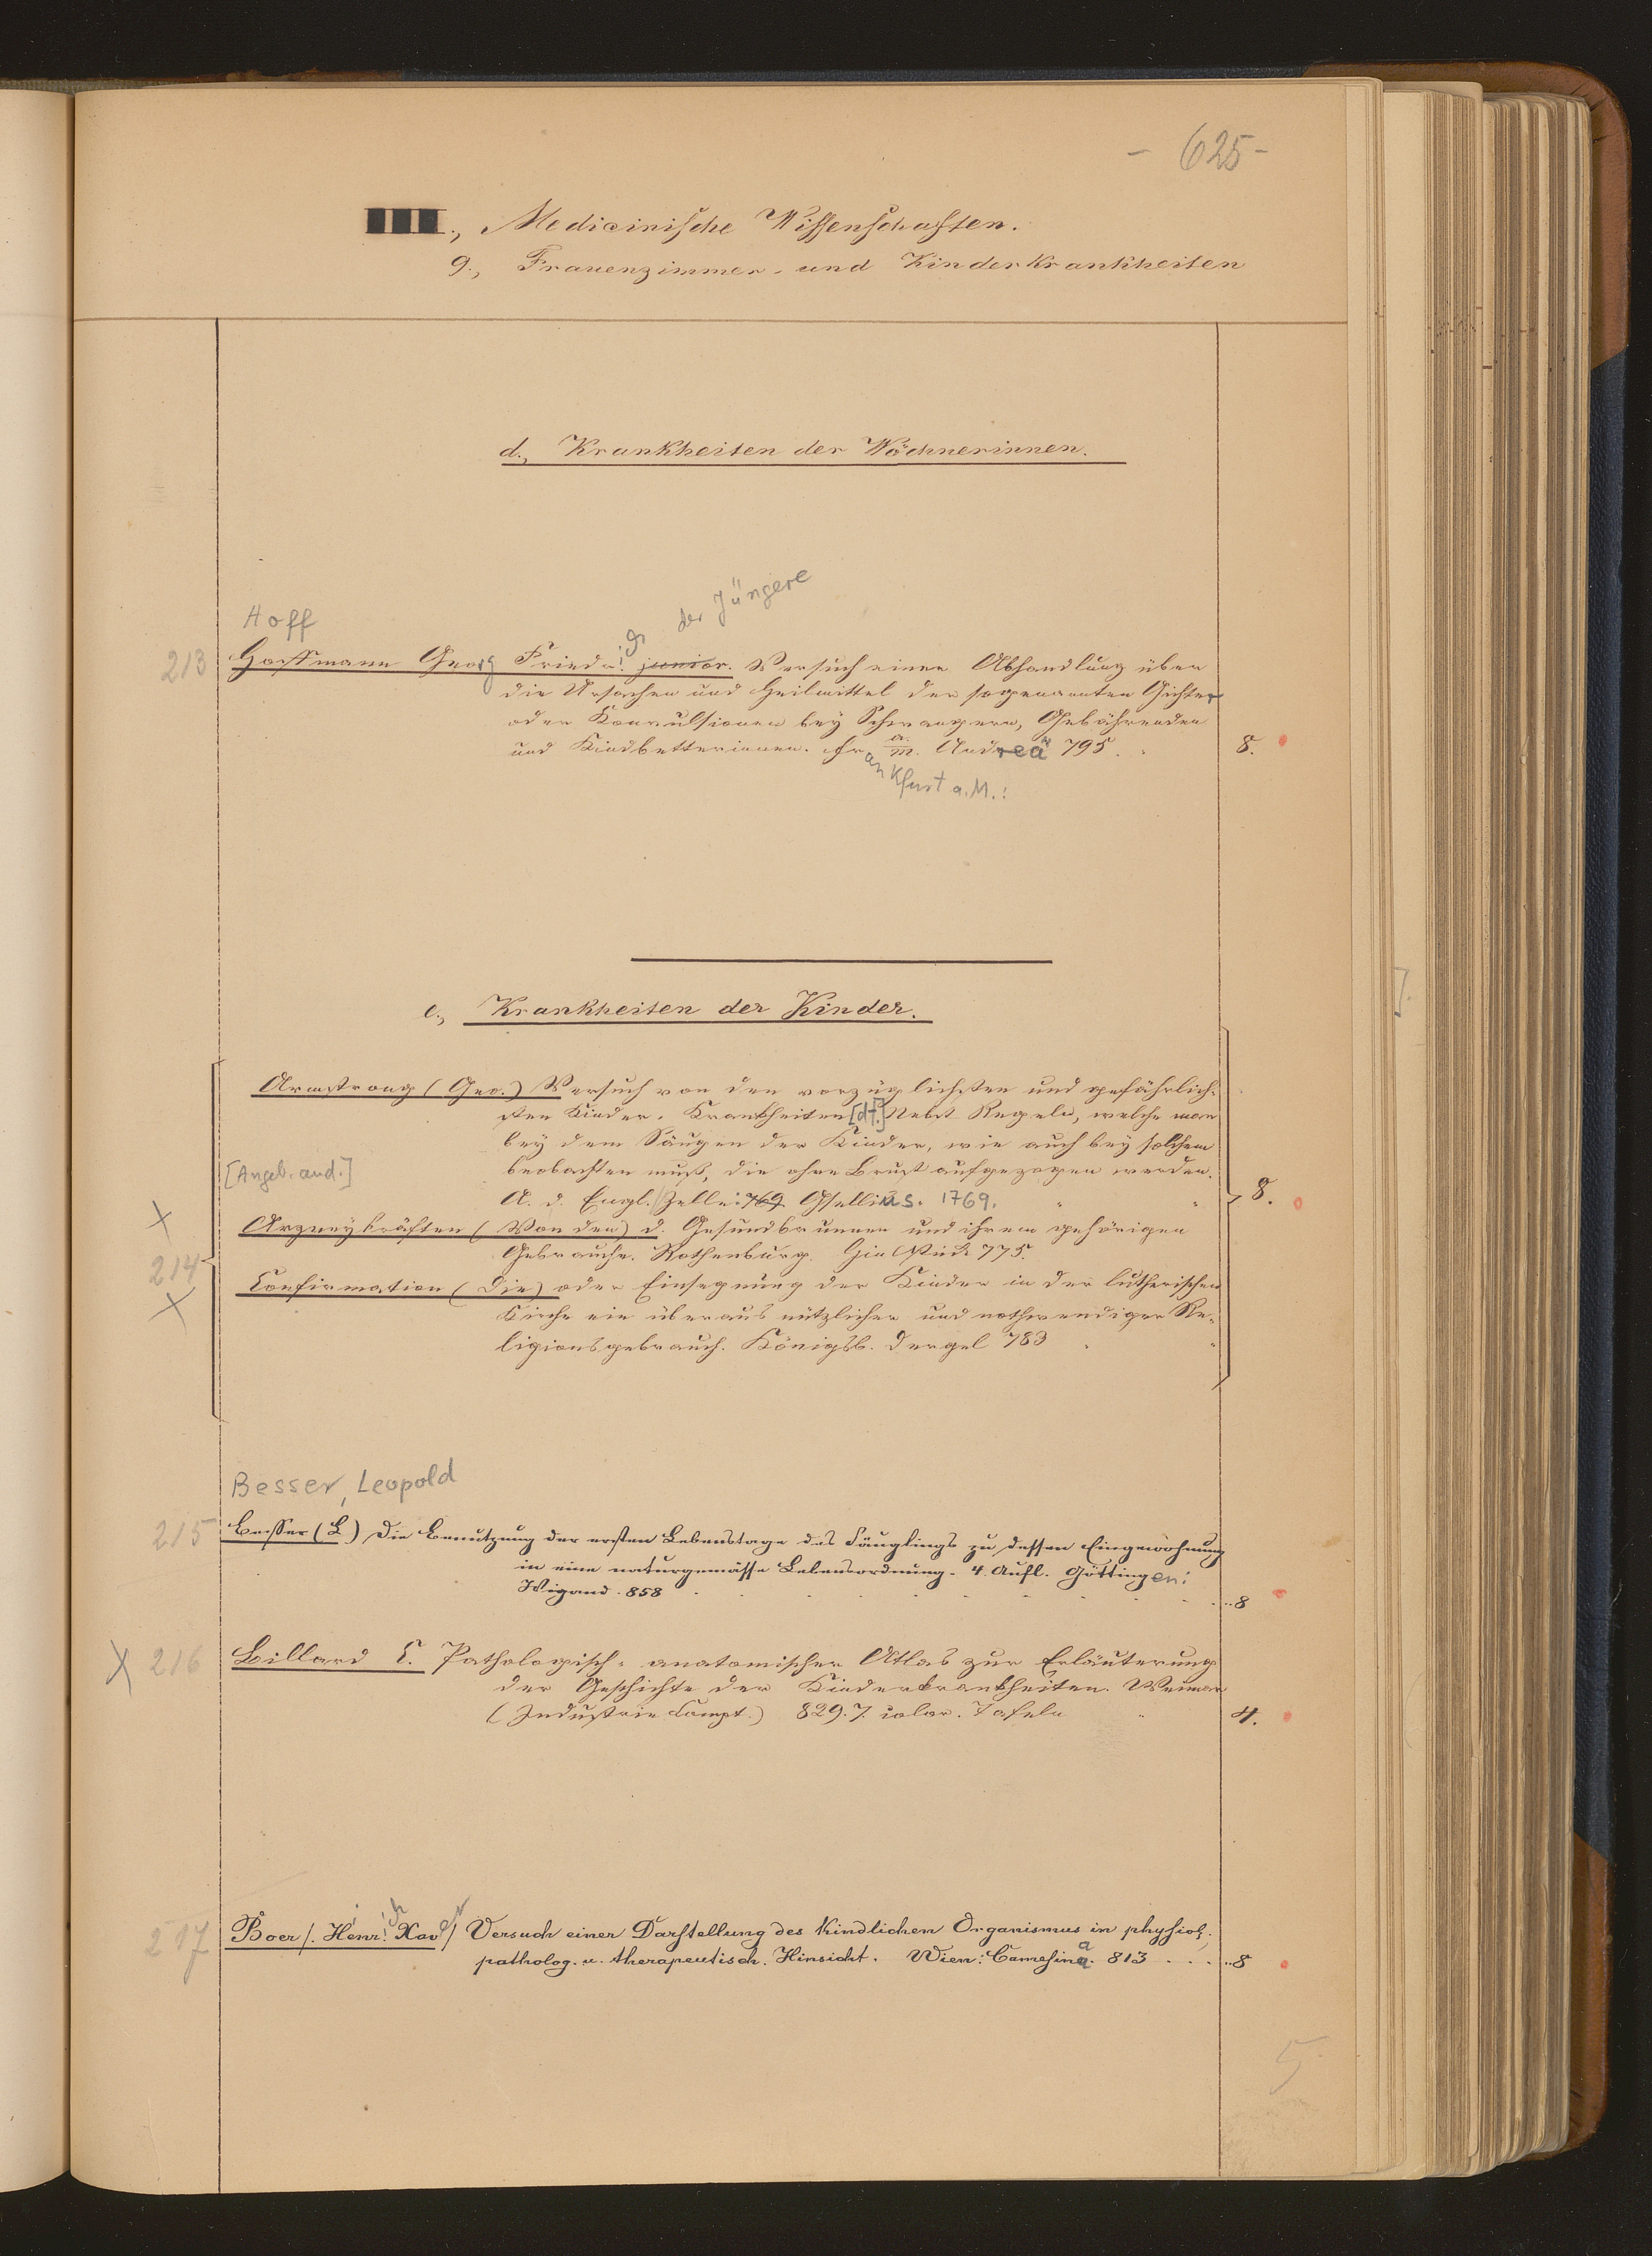 - 625 -
III., Medicinische Wissenschaften.
9., Frauenzimmer- und Kinderkrankheiten
d., Krankheiten der Wöchnerinnen.
Hoff
der Jüngere
213 Hoffmann Georg Friedr. junior. Versuch einer Abhandlung über
die Ursachen und Heilmittel der sogenannten Gichter
oder Konvulsionen bey Schwangern, Gebährenden
und Kindbetterinnen. Fr. a. m. Andreä 795. 8.
ankfurt a.M.:
e., Krankheiten der Kinder.
Armstrong (Geo.) Versuch von den vorzüglichsten und gefährlich-
sten Kinder-Krankheiten [dt.] Nebst Regeln, welche man
bey dem Säugen der Kinder, wie auch bey solchem
[Angeb. and.] beobachten muß, die ohne Brust aufgezogen werden.
A. d. Engl. Zelle: 769 Gsellius. 1769. 8.
X
Arzneykräften (Von den) d. Gesundbrunnen und ihrem gehörigen
Gebrauche. Rothenburg. 775.
214
X
Confirmation (Die) oder Einsegnung der Kinder in der lutherischen
Kirche ein überaus nützlicher und nothwendiger Re-
ligionsgebrauch. Königsb. Dergel 783
Besser, Leopold
215 Besser (L) Die Benutzung der ersten Lebenstage des Säuglings zu dessen Eingewöhnung
in eine naturgemässe Lebensordnung. 4. Aufl. Göttingen:
Wigand. 858 8
X 216 Billard C. Pathologisch-anatomischer Atlas zur Erläuterung
der Geschichte der Kinderkrankheiten. Weimar
(Industrie Compt.) 829. 7. color. Tafeln 4.
217 Boer /. Heinrich Xaver / Versuch einer Darstellung des kindlichen Organismus in physiol.,
patholog. u. therapeutisch. Hinsicht. Wien: Camesina. 813 . . . 8
5